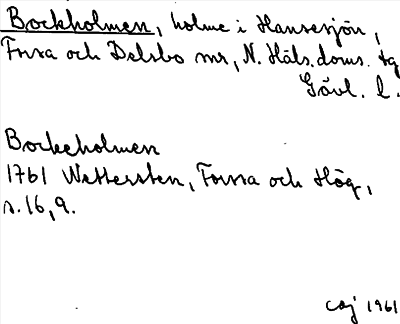 Bockholmen, holme i Hansesjön,
Forsa och Delsbo snr, N. Häls. doms. tg
Gävl. l.
Bockeholmen
1761 Wettersten, Forssa och Hög,
s. 16, 9.
caj 1961